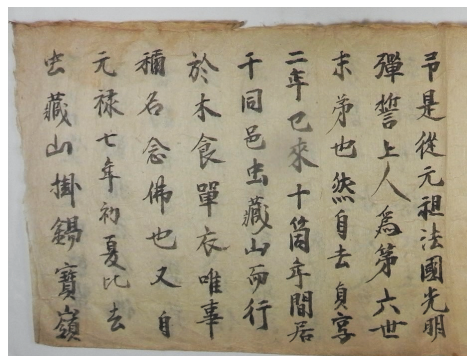 是從元祖法國光明
彈誓上人爲第六世
末弟也然自去貞享
二年已來十箇年間居
于同邑虫藏山而行
於木食單衣唯事
稱名念佛也又自
元禄七年初夏比去
虫藏山掛錫寶嶺